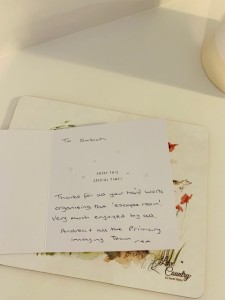 To
ENJOY THIS
SPECIAL TIME!
Thanks for all your hard work
organising that 'escape room'
Very much enjoyed by all.
+ all the Primary
Imaging Team
Country